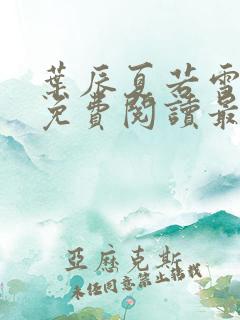 葉辰夏若雪
免費閱讀最
亞歷克斯
未經同意禁止轉載